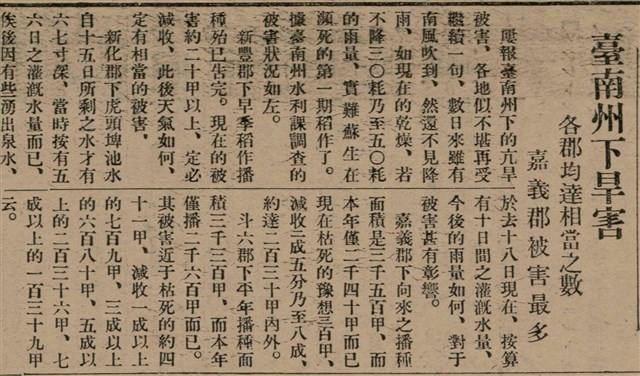 臺南州下旱害
各郡均達相當之數
嘉義郡被害最多
屢報臺南州下的亢旱
被害、各地似不堪再受
繼續一句、數日來雖有
南風吹到、然還不見降
雨、如現在的乾燥、若
不降三〇粍乃至五〇粍
的雨量、實難蘇生在
瀕死的第一期稻作了。
據臺南州水利課調查的
被害狀況如左。
新豐郡下早季稻作播
種殆已告完。現在的被
害約二十甲以上、定必
減收、此後天氣如何、
定有相當的被害。
新化郡下虎頭埤池水
自十五日所剩之水才有
六七寸深、當時按有五
六日之灌漑水量而已、
俟後因有些湧出泉水、
於去十八日現在、按算
有十日間之灌漑水量、
今後的雨量如何、對于
被害甚有影響。
嘉義郡下向來之播種
面積是三千五百甲、而
本年僅二千四十甲而已
現在枯死的豫想三百甲、
減收三成五分乃至八成、
約達二百三十甲內外。
斗六郡下平年播種面
積三千三百甲、而本年
僅播二千六百甲而已。
其被害近于枯死的約四
十一甲、減收一成以上
的七百九甲、三成以上
的六百八十甲、五成以
上的二百三十六甲、七
成以上的一百三十九甲
云。